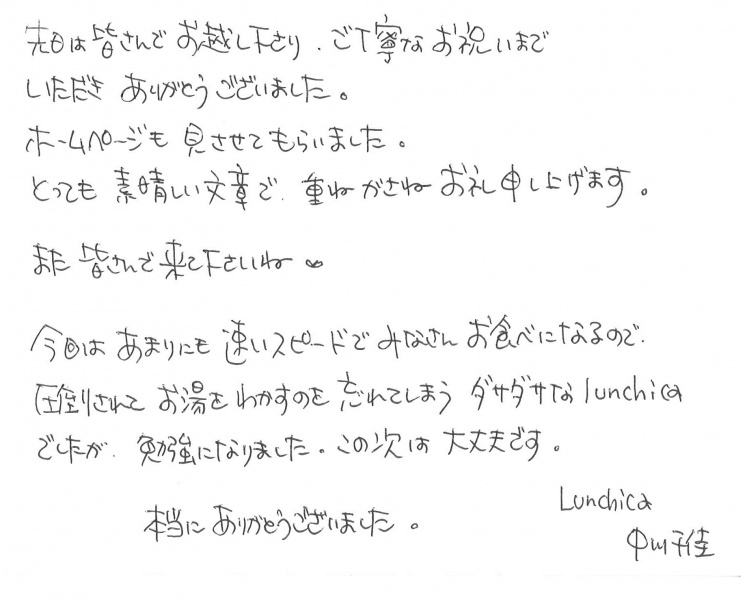 先日は皆さんでお越し下さり、ご丁寧なお祝いまで
いただきありがとうございました。
ホームページも見させてもらいました。
とっても素晴しい文章で、重ねがさねお礼申し上げます。
また皆さんで来て下さいね
今回はあまりにも速いスピードでみなさんお食べになるので、
圧倒されてお湯をわかすのを忘れてしまうダサダサなlunchica
でしたが、勉強になりました。この次は大丈夫です。
本当にありがとうございました。
Lunchica
中山